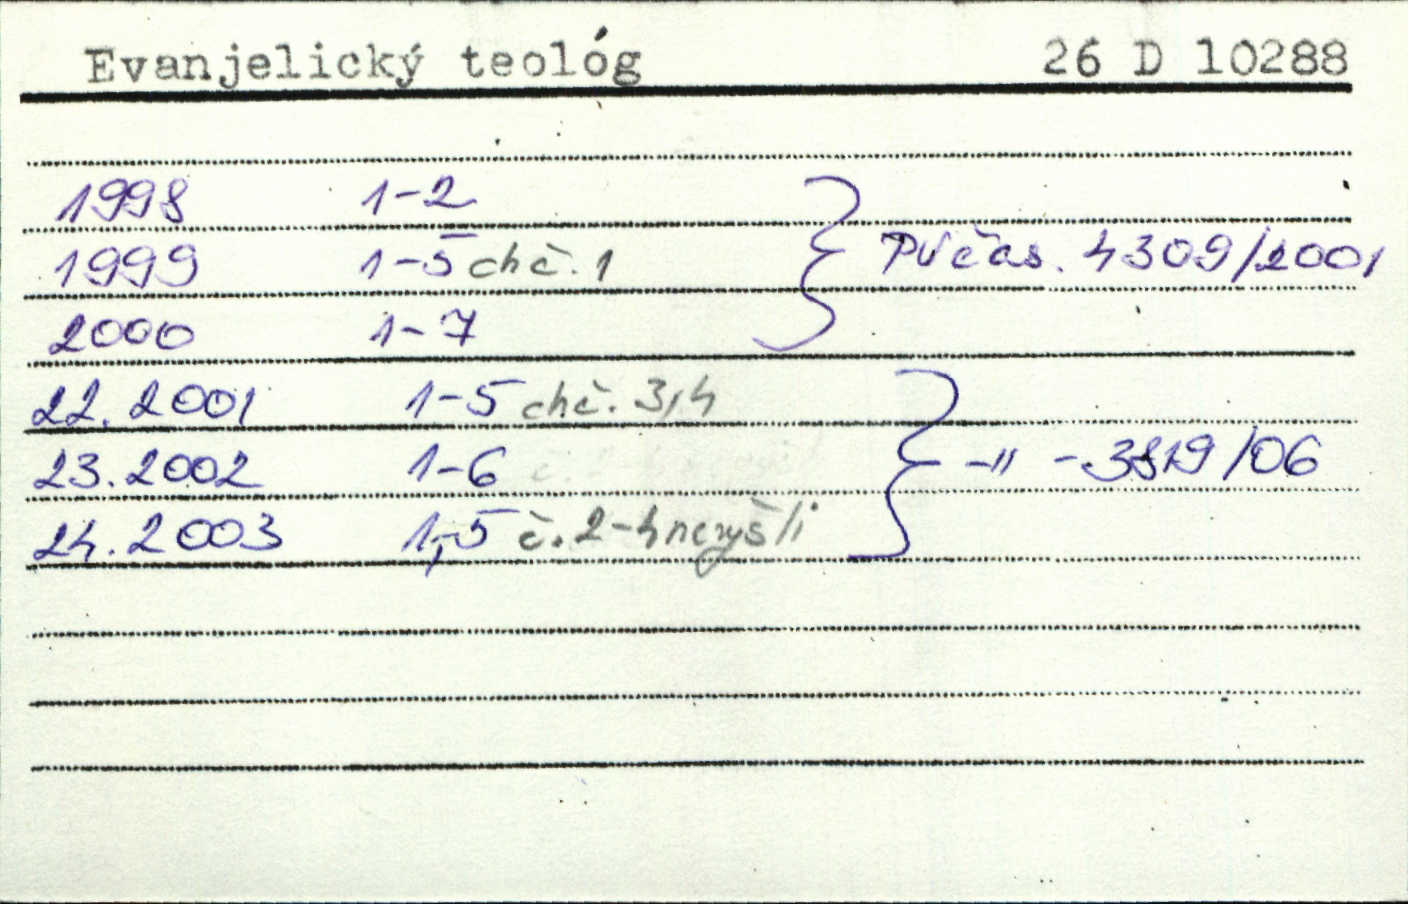 Evanjelický teológ 26 D 10288
1998 1-2
1999 1-5 chč. 1 PV čas. 4309/2001
2000 1-7
22. 2001 1-5 chč. 3,4
23. 2002 1-6 -"- 3819/06
24. 2003 1,-5 č. 2-4 nevyšli